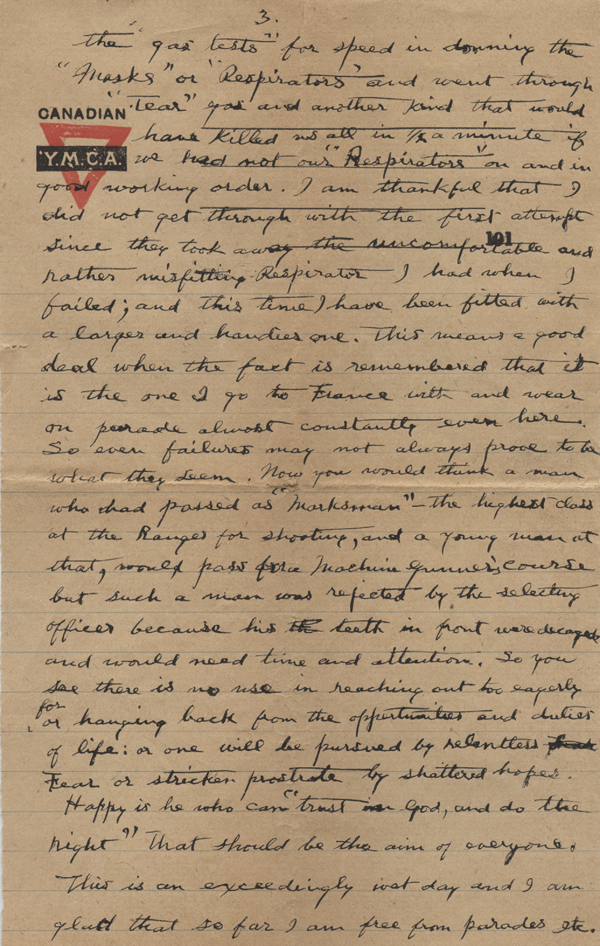 3.
the "gas tests" for speed in donning the
"Masks" or "Respirators" and went through
"Tear" gas and another kind that would
CANADIAN
Y.M.C.A.
have killed us all in ½ a minute if
we had not our "Respirators" on and in
good working order. I am thankful that I
did not get through with the first attempt
101
since they took away the uncomfortable and
rather misfitting Respirator I had when I
failed; and this time I have been fitted with
a larger and handier one. This means a good
deal when the fact is remembered that it
is the one I go to France with and wear
on parade almost constantly even here.
So even failures may not always prove to be
what they seem. Now you would think a man
who had passed as "Marksman" - the highest class
at the Ranges for shooting, and a young man at
that, would pass for a Machine Gunner's course
but such a man was rejected by the selecting
officer because his teeth in front were decayed
and would need time and attention. So you
see there is no use in reaching out too eagerly
for
or hanging back from the opportunities and duties
of life: or one will be pursued by relentless
Fear or stricken prostrate by shattered hopes.
Happy is he who can "trust in God, and do the
right" That should be the aim of everyone.
This is an exceedingly wet day and I am
glad that so far I am free from parades etc.